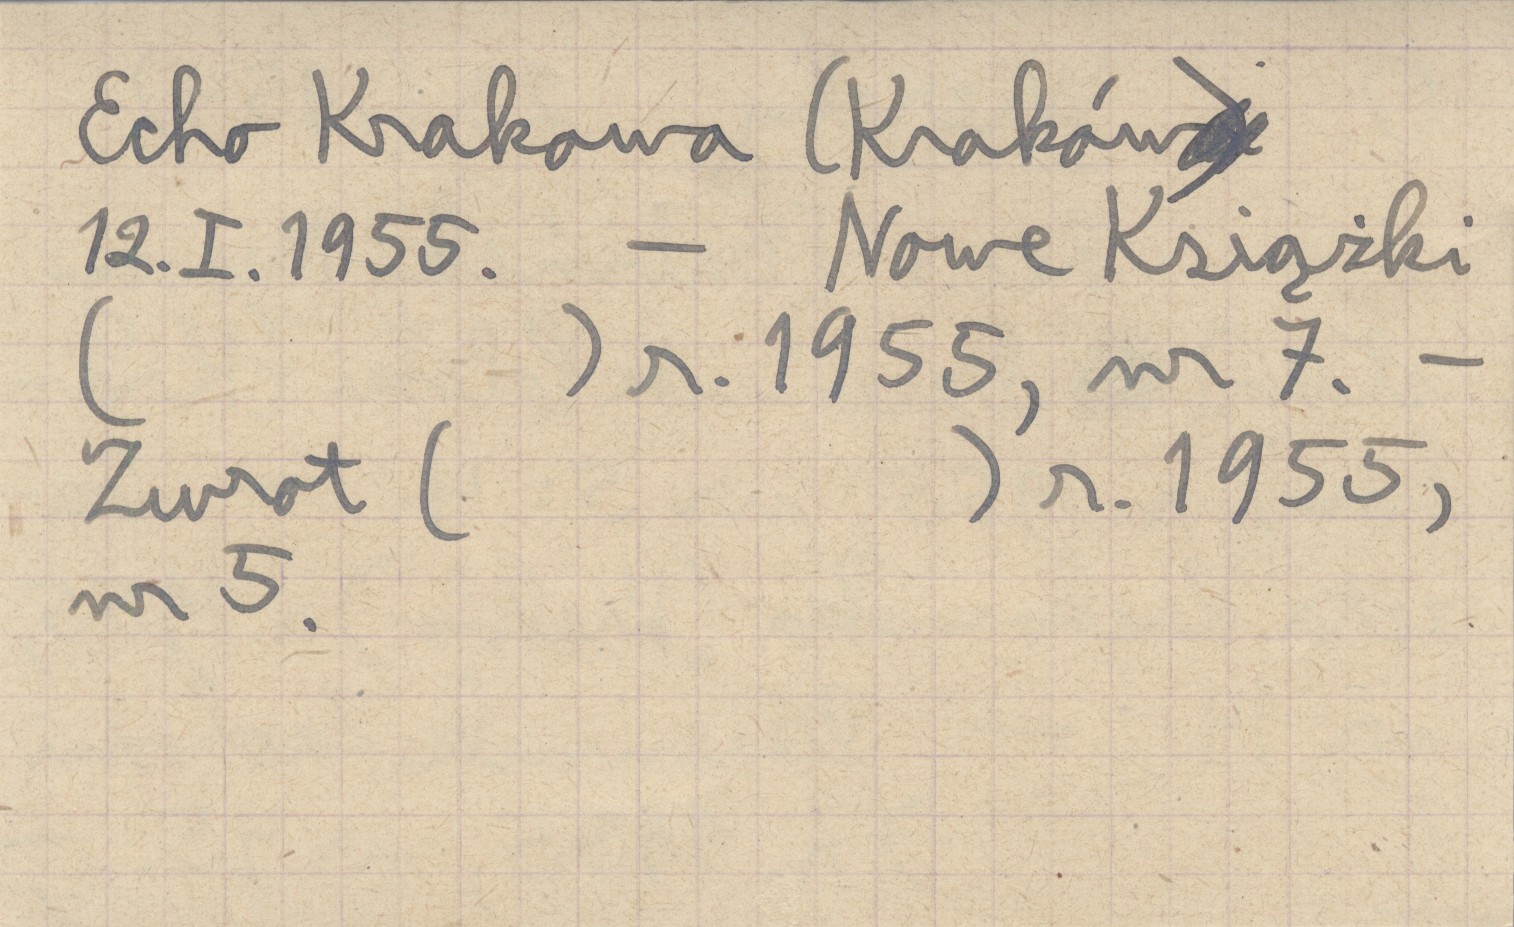 Echo Krakowa (Kraków)
12.I.1955. — Nowe Książki
( ) r. 1955, nr 7. —
Zwrot ( ) r. 1955,
nr 5.